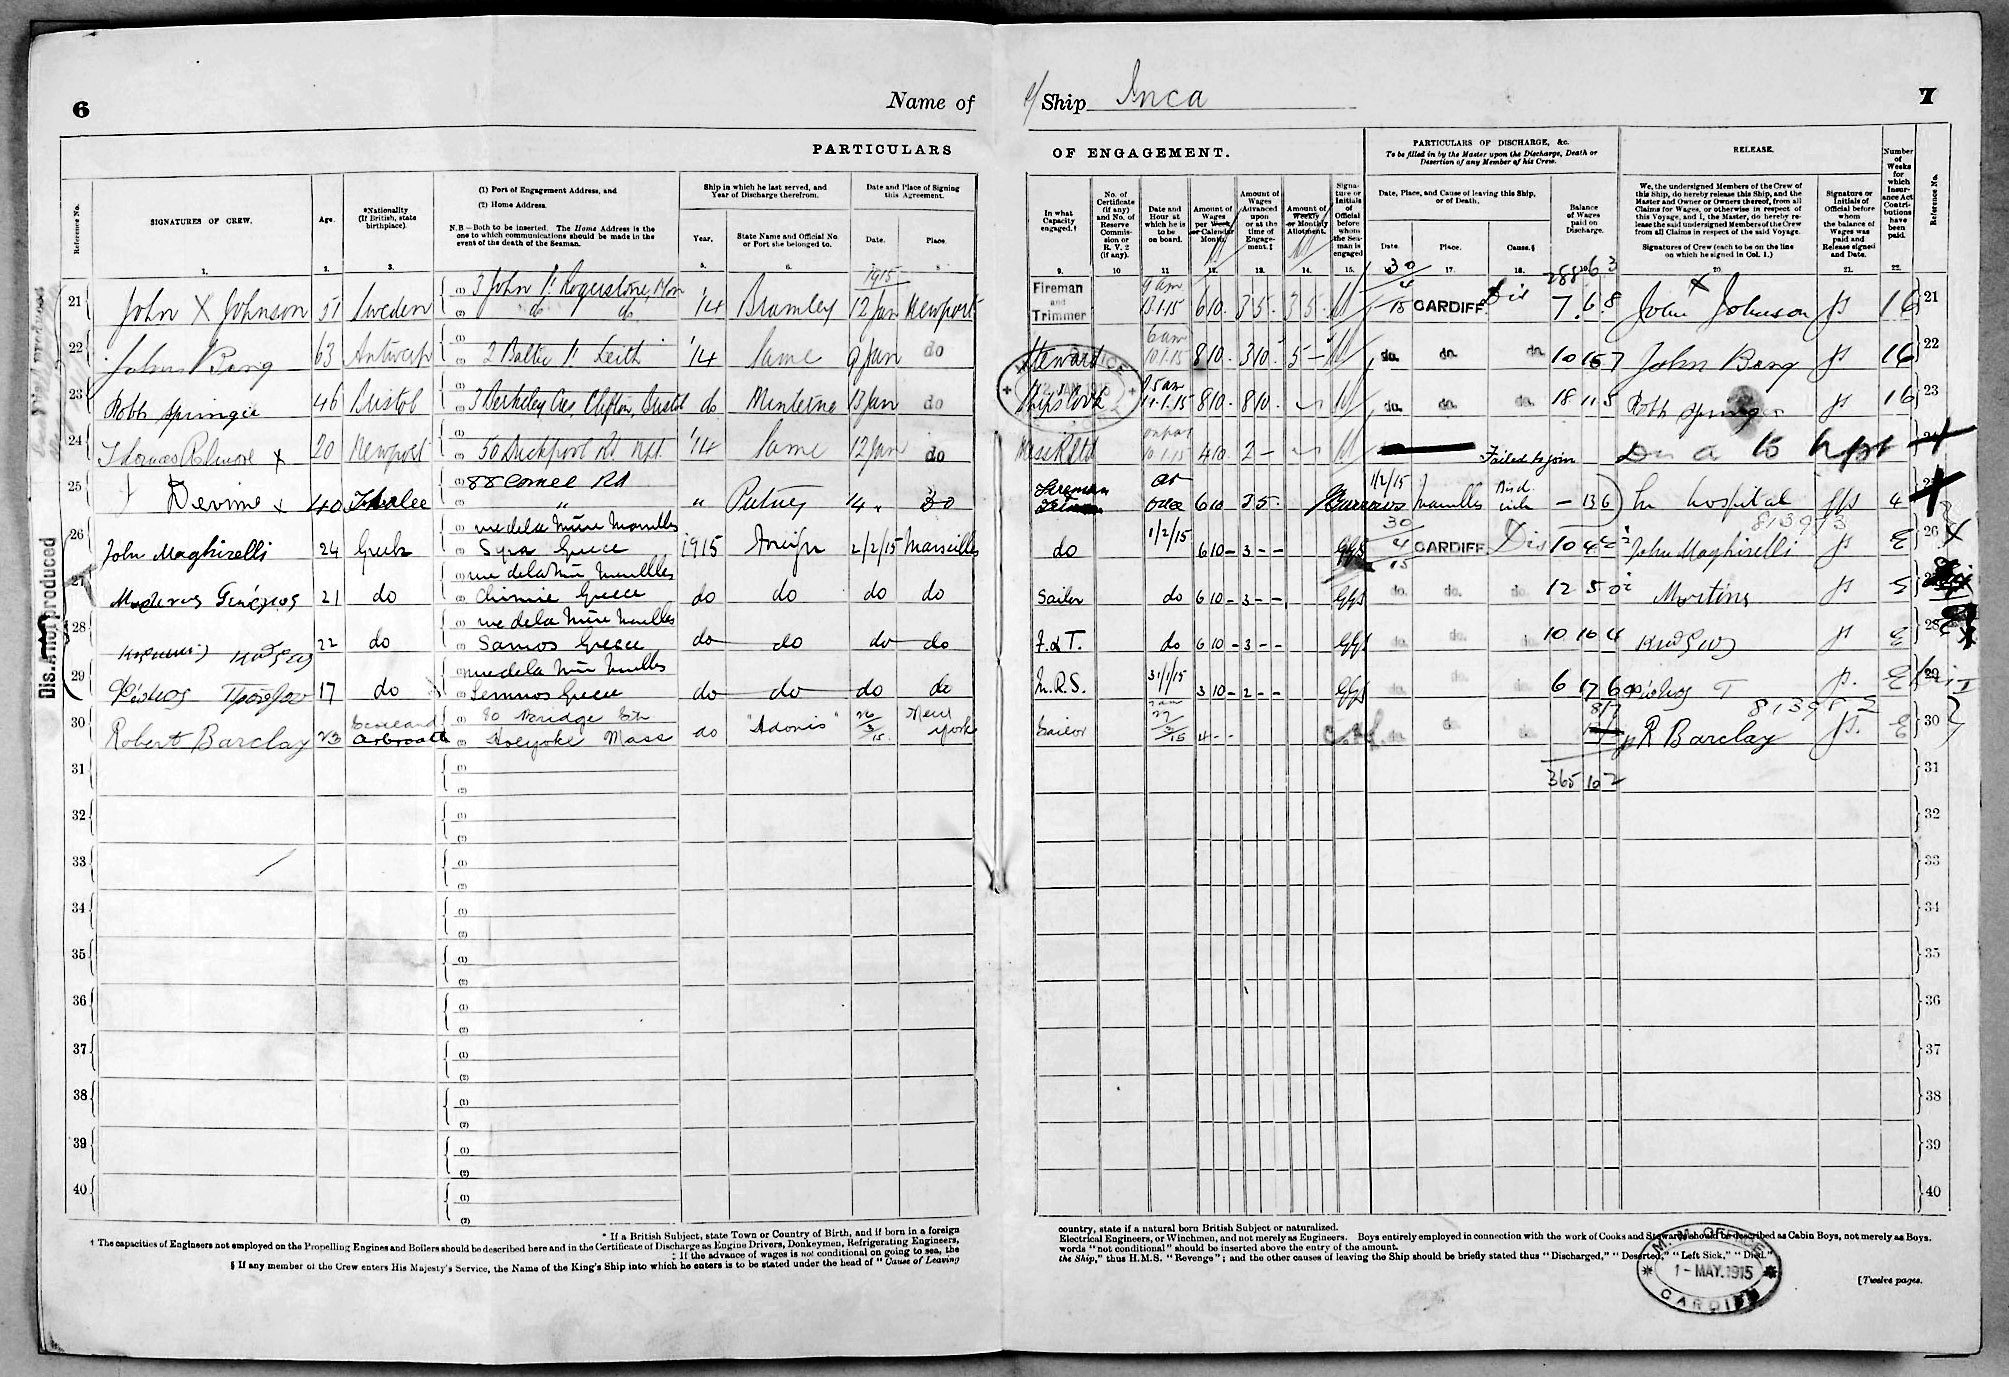 6
Name of
Ship Inca
7
PARTICULARS
OF ENGAGEMENT.
PARTICULARS OF DISCHARGE, &c.
To be filled in by the Master upon the Discharge, Death or
Desertion of any Member of his Crew.
RELEASE.
Reference No.
SIGNATURES OF CREW.
Age.
*Nationality
(If British, state
birthplace).
(1) Port of Engagement Address, and
(2) Home Address.
N.B.—Both to be inserted. The Home Address is the
one to which communications should be made in the
event of the death of the Seaman.
Ship in which he last served, and
Year of Discharge therefrom.
Year.
State Name and Official No.
or Port she belonged to.
Date and Place of Signing
this Agreement.
Date.
Place.
In what
Capacity
engaged.†
No. of
Certificate
(if any)
and No. of
Reserve
Commis-
sion or
R. V. 2
(if any).
Date and
Hour at
which he is
to be
on board.
Amount of
Wages
per Week
or Calendar
Month.
Amount of
Wages
Advanced
upon
or at the
time of
Engage-
ment.‡
Amount of
Weekly
or Monthly
Allotment.
Signa-
ture or
Initials
of
Official
before
whom
the Sea-
man is
engaged
Date, Place, and Cause of leaving this Ship,
or of Death.
Date.
Place.
Cause.§
Balance
of Wages
paid on
Discharge.
We, the undersigned Members of the Crew of
this Ship, do hereby release this Ship, and the
Master and Owner or Owners thereof, from all
Claims for Wages, or otherwise in respect of
this Voyage, and I, the Master, do hereby re-
lease the said undersigned Members of the Crew
from all Claims in respect of the said Voyage.
Signatures of Crew (each to be on the line
on which he signed in Col. 1.)
Signature or
Initials of
Official before
whom
the balance of
Wages was
paid and
Release signed
and Date.
Number
of
Weeks
for
which
Insur-
ance Act
Contri-
butions
have
been
paid.
Reference No.
1. 2. 3. 5. 6. 8
9. 10 11 12. 13. 14. 15. 17. 18. 20. 21. 22.
1915
288 6 3
21 John X Johnson 51 Sweden (1) 3 John St Rogerstone, Mon (2) do do '14 Bramley 12 Jan Newport
Fireman and Trimmer 9 am 13.1.15 6 10. 3 5. 3 5. 30/4/15 CARDIFF. Dis 7.6.8 John X Johnson js 16 21
22 John Bang 63 Antwerp (1) 2 Baltic St Leith (2) '14 Same 9 Jan do
Steward 6 am 10.1.15 8 10. 3 10. 5 — do. do. do. 10 16 7 John Bang js 16 22
23 Robt Springer 46 Bristol (1) 3 Berkeley Cres Clifton, Bristol (2) do Minterne 13 Jan do
Ships Cook 5 am 8 10. 8 10. do. do. do. 18 11 5 Robt Springer js 16 23
24 Thomas X 20 Newport (1) 50 Duckpool Rd Npt. (2) '14 Same 12 Jan do
10.1.15 4 10. 2 — Failed to join 24
25 Devine x 40 Tralee 88 Comel Rd " " Putney 14 " do
Fireman at once 6 10 3 5. 1/2/15 Marseilles — 13 6 In hospital ggs 4
813973
26 John Maghirelli 24 Greek (1) rue de la Mure Marseilles (2) Syra Greece 1915 Foreign 2/2/15 Marseilles
do 1/2/15 6 10 — 3 — — GGS 30/4/15 CARDIFF Dis 10 4 John Maghirelli js E 26
27 21 do (1) rue de la Mure Marseilles (2) Greece do do do do
Sailor do 6 10 — 3 — — GGS do. do. do. 12 5 Martinis js
28 22 do rue de la Mure Marseilles (2) Samos Greece do do do do
F. & T. do 6 10 — 3 — — GGS do. do. 10 16 4 js E 28
29 17 do rue de la Mure Marseilles (2) Lemnos Greece do do do do
M.R.S. 31/1/15 3 10 — 2 — — GGS do. do. 6 17 6 js. E 29
30 Robert Barclay 23 Scotland Arbroath (1) 80 Bridge Str (2) Holyoke Mass do "Adonis" 26/3/15. New York
Sailor 7 am 27/3/15 4 — — do. do. do. R Barclay js. E 30
365 10 2
31 (1) (2) 31
32 (1) (2) 32
33 (1) (2) 33
34 (1) (2) 34
35 (1) (2) 35
36 (1) (2) 36
37 (1) (2) 37
38 (1) (2) 38
39 (1) (2) 39
40 (1) (2) 40
* If a British Subject, state Town or Country of Birth, and if born in a foreign
country, state if a natural born British Subject or naturalized.
† The capacities of Engineers not employed on the Propelling Engines and Boilers should be described here and in the Certificate of Discharge as Engine Drivers, Donkeymen, Refrigerating Engineers,
Electrical Engineers, or Winchmen, and not merely as Engineers. Boys entirely employed in connection with the work of Cooks and Stewards should be described as Cabin Boys, not merely as Boys.
‡ If the advance of wages is not conditional on going to sea, the
words "not conditional" should be inserted above the entry of the amount.
§ If any member of the Crew enters His Majesty's Service, the Name of the King's Ship into which he enters is to be stated under the head of "Cause of Leaving
the Ship," thus H.M.S. "Revenge"; and the other causes of leaving the Ship should be briefly stated thus "Discharged," "Deserted," "Left Sick," "Died."
M. M. OFFICE
1 - MAY. 1915
CARDIFF
[Twelve pages.